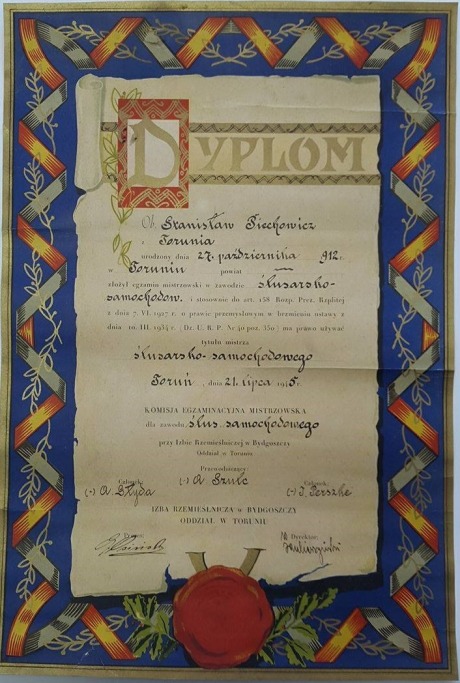 DYPLOM
Ob. Stanisław Piechowicz
z Torunia
urodzony dnia 27. października 912 r.
w Toruniu powiat
złożył egzamin mistrzowski w zawodzie ślusarsko-
samochodow. i stosownie do art. 158 Rozp. Prez. Rzplitej
z dnia 7. VI. 1927 r. o prawie przemysłowym w brzmieniu ustawy z
dnia 10. III 1934 r. (Dz. U. R. P. Nr 40 poz. 350) ma prawo używać
tytułu mistrza
ślusarsko-samochodowego
Toruń, dnia 21. lipca 1945 r.
KOMISJA EGZAMINACYJNA MISTRZOWSKA
dla zawodu ślus. samochodowego
przy Izbie Rzemieślniczej w Bydgoszczy
Oddział w Toruniu
Przewodniczący:
(-) A. Szulc
Członek: Członek:
(-) A. Błyda (-) J. Perszke
IZBA RZEMIEŚLNICZA w BYDGOSZCZY
ODDZIAŁ W TORUNIU
Dyrektor: